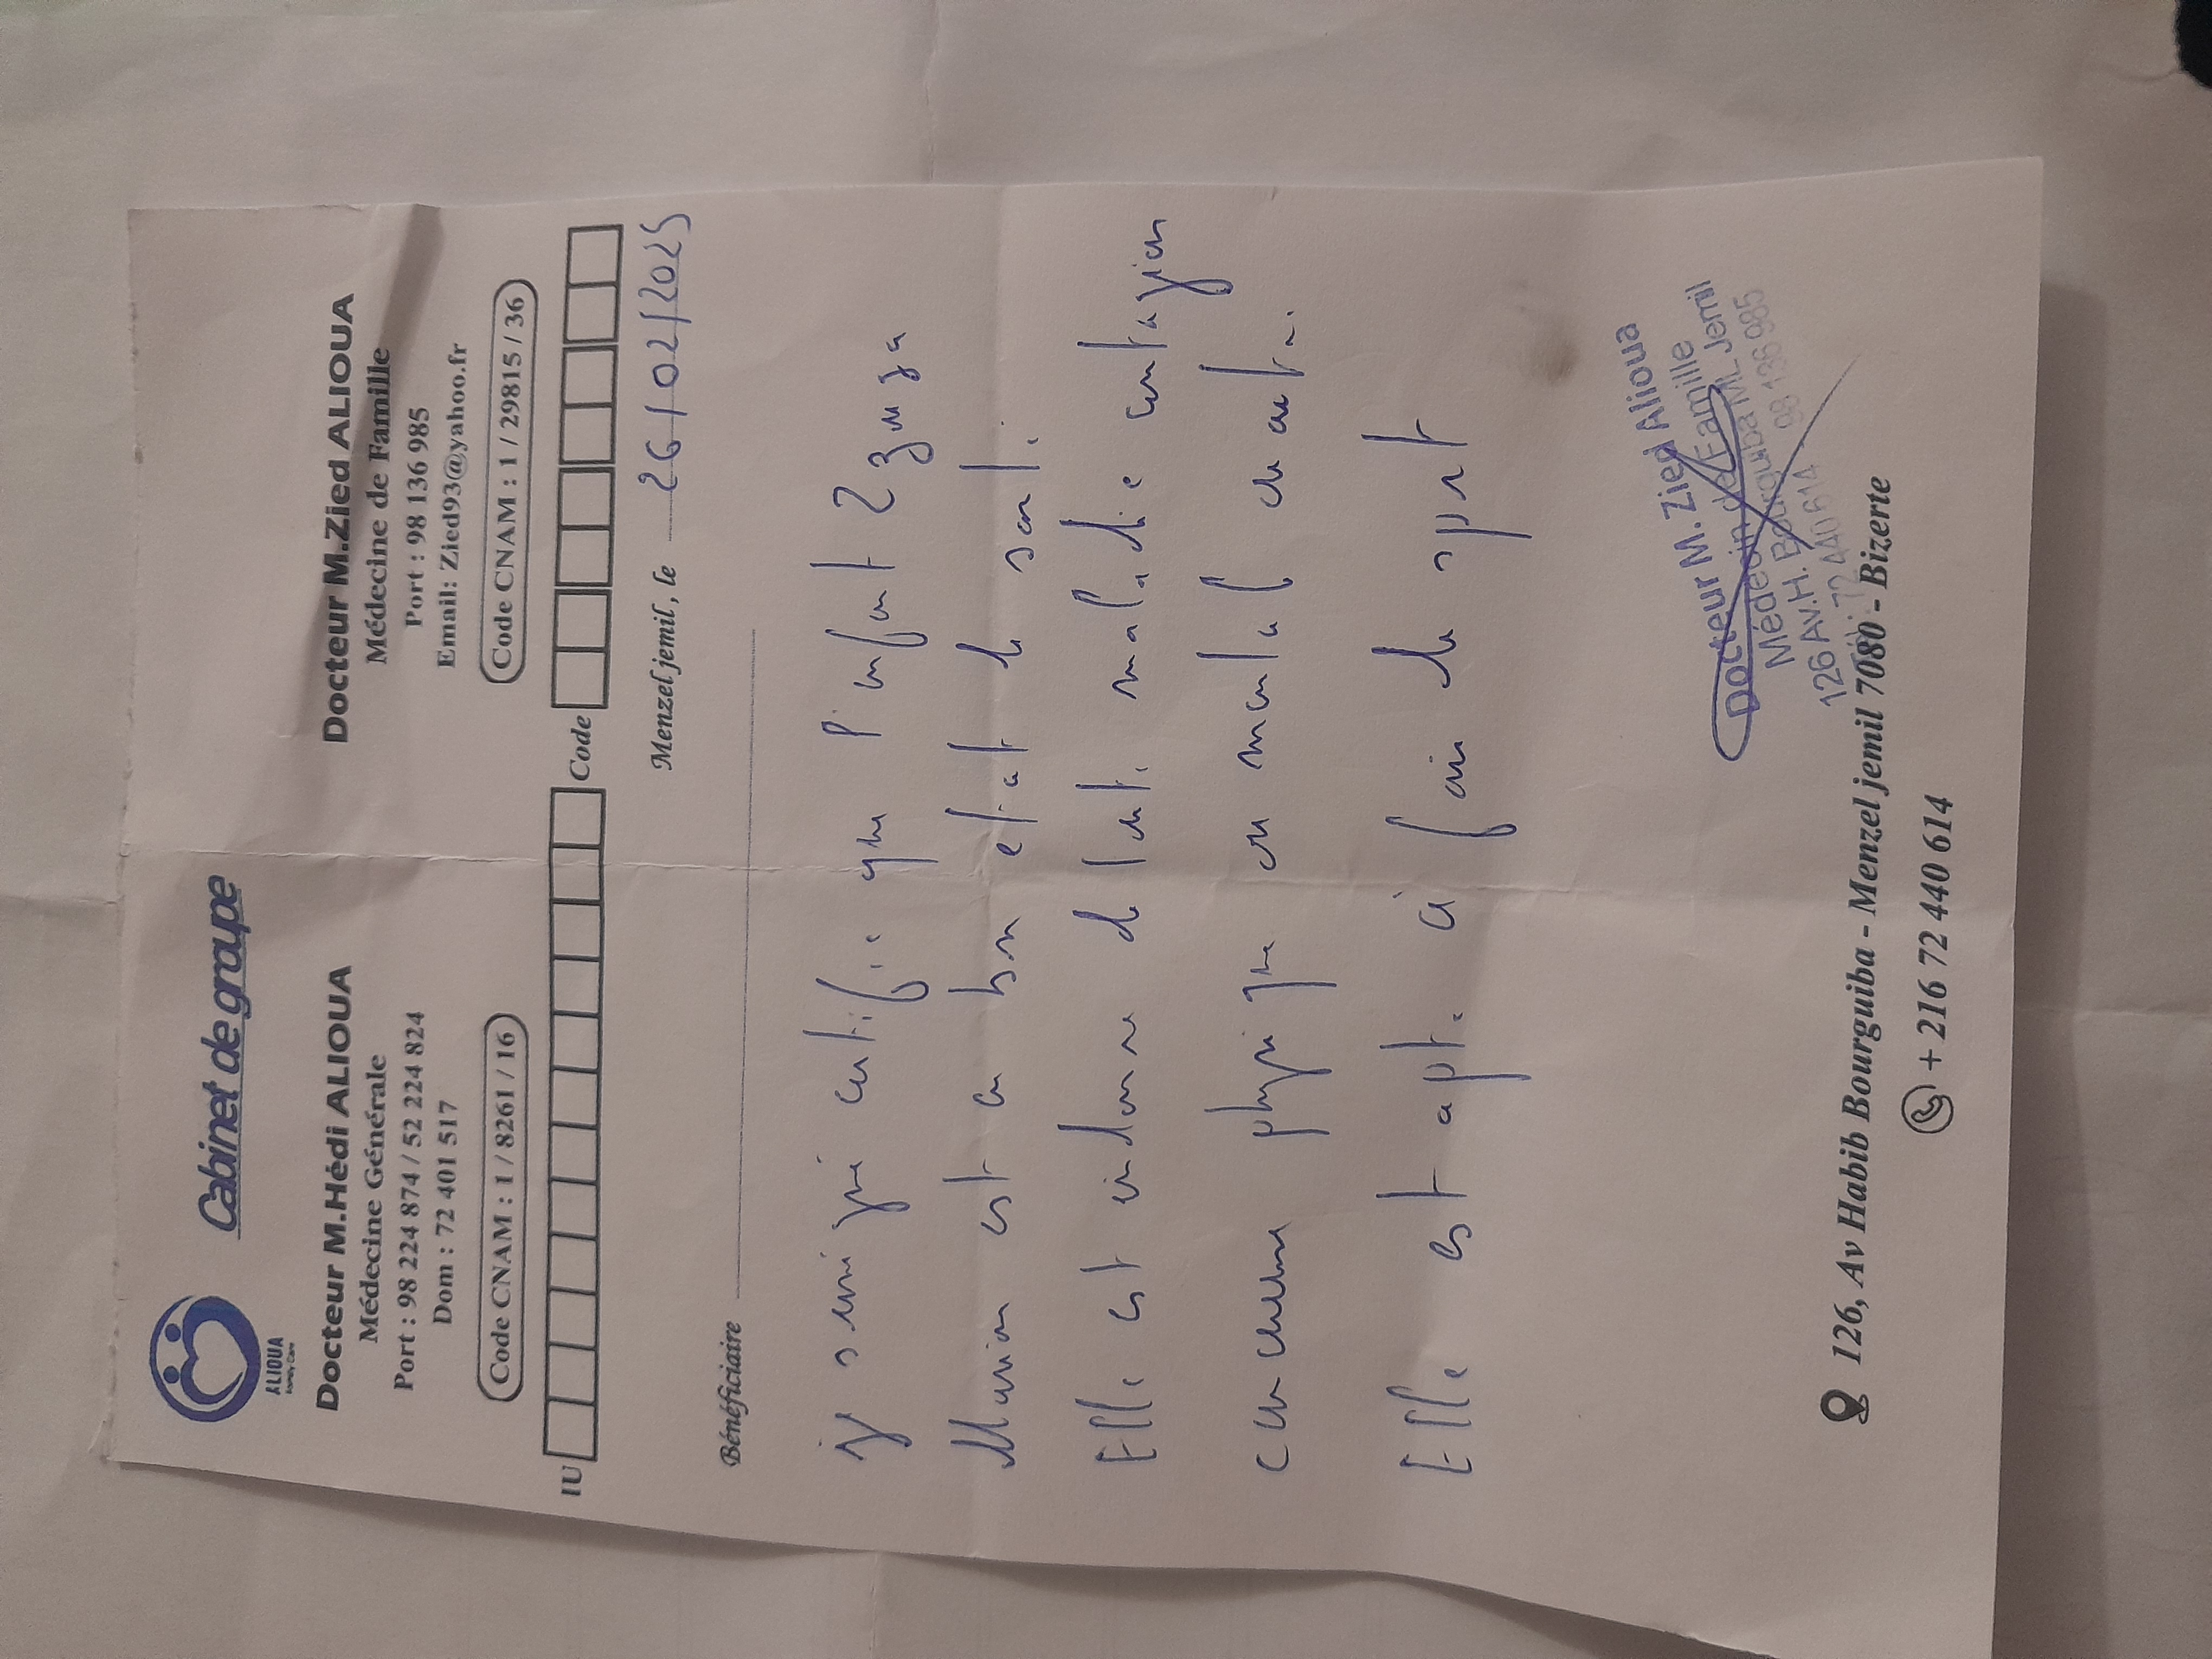 Cabinet de groupe
ALIOUA
Family Care
Docteur M.Hédi ALIOUA
Médecine Générale
Port : 98 224 874 / 52 224 824
Dom : 72 401 517
Code CNAM : 1 / 8261 / 16
Docteur M.Zied ALIOUA
Médecine de Famille
Port : 98 136 985
Email: Zied93@yahoo.fr
Code CNAM : 1 / 29815 / 36
IU Code
Menzel jemil, le 26/02/2025
Bénéficiaire
je soussigné certifie que l'enfant
est en bon etat de santé.
Elle est indemne de toute maladie contagieuse
physique ou mental
Elle est apte à faire du sport
Docteur M. Zied Alioua
Médecin de Famille
126 AV.H. Bourguiba ML Jemil
Tél : 72 440 614 98 136 985
126, Av Habib Bourguiba - Menzel jemil 7080 - Bizerte
+ 216 72 440 614